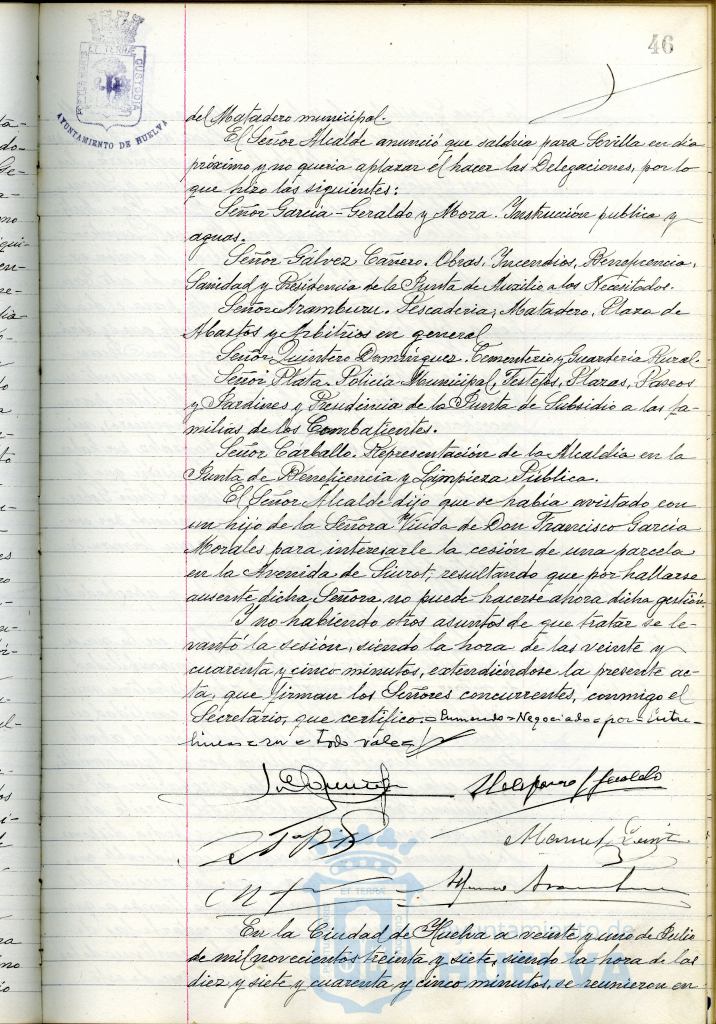 46
ET TERRÆ
CUSTODIA
AYUNTAMIENTO DE HUELVA
del Matadero municipal.
El Señor Alcalde anunció que saldria para Sevilla en dia
próximo y no queria aplazar el hacer las Delegaciones, por lo
que hizo las siguientes:
Señor Garcia-Geraldo y Mora. Instrucción publica y
aguas.
Señor Gálvez Cañero. Obras, Incendios, Beneficencia,
Sanidad y Presidencia de la Junta de Auxilio a los Necesitados.
Señor Aramburu. Pescaderia, Matadero, Plaza de
Abastos y Arbitrios en general
Señor Quintero Domínguez. Cementerio y Guarderia Rural.
Señor Plata. Policia Municipal, Festejos, Plazas, Paseos
y Jardines y Presidencia de la Junta de Subsidio a las fa-
milias de los Combatientes.
Señor Carballo. Representación de la Alcaldia en la
Junta de Beneficencia y Limpieza Pública.
El Señor Alcalde dijo que se había avistado con
un hijo de la Señora Viuda de Don Francisco Garcia
Morales para interesarle la cesión de una parcela
en la Avenida de Siurot, resultando que por hallarse
ausente dicha Señora no puede hacerse ahora dicha gestión.
Y no habiendo otros asuntos de que tratar se le-
vantó la sesión, siendo la hora de las veinte y
cuarenta y cinco minutos, extendiéndose la presente ac-
ta, que firman los Señores concurrentes, conmigo el
Secretario, que certifico.= Enmendo=Negociado=por=Entre-
lineas= =Todo vale=
Manuel
En la Ciudad de Huelva a veinte y uno de Julio
de mil novecientos treinta y siete, siendo la hora de las
diez y siete y cuarenta y cinco minutos, se reunieron en
ET TERRÆ
Ayuntamiento de
HUELVA